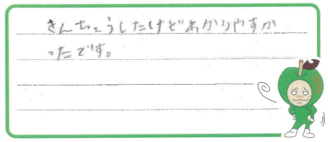 きんちょうしたけどわかりやすか
ったです。